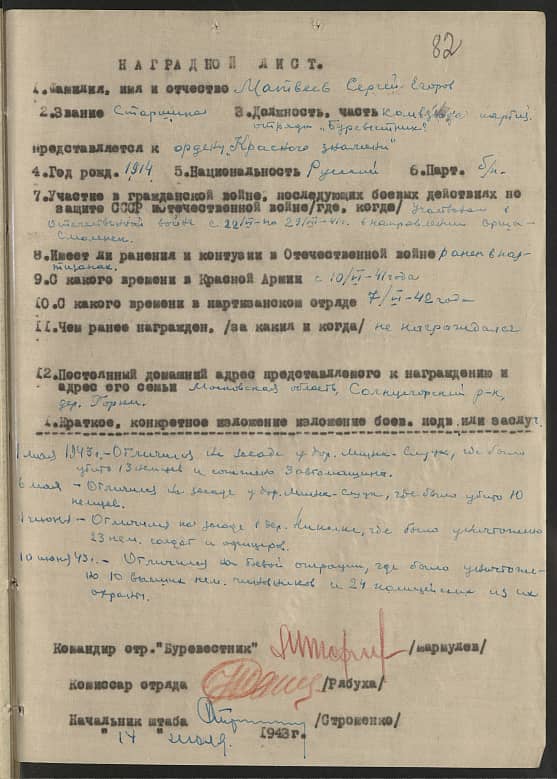 82
НАГРАДНОЙ ЛИСТ.
1.Фамилия, имя и отчество Матвеев Сергей Егоров
2.Звание Старшина 3.Должность, часть комвзвода партиз.
отряда „Буревестник"
представляется к ордену „Красного знамени"
4.Год рожд. 1914 5.Национальность Русский 6.Парт. б/п.
7.Участие в гражданской войне, последующих боевых действиях по
защите СССР и отечественной войне/где, когда/ участвовал в
Отечественной войне с 22/VI- по 29/VII-41г. в направлении Орша-
Смоленск.
8.Имеет ли ранения и контузии в Отечественной войне ранен в пар-
тизанах.
9.С какого времени в Красной Армии с 10/VI-41 года
10.С какого времени в партизанском отряде 7/VI-42 года
11.Чем ранее награжден, /за какия и когда/ не награждался
12.Постоянный домашний адрес представляемого к награждению и
адрес его семьи Московская область, Солнцегорский р-н,
дер. Горки.
1.Краткое, конкретное изложение изложение боев. подв. или заслуг.
1 мая 1943г.- Отличился на засаде у дор. Минск-Слуцк, где было
убито 13 немцев и сожжено 3 автомашины.
6 мая - Отличился на засаде у дор. Минск-Слуцк, где было убито 10
немцев.
июня - Отличился на засаде в дер. где было уничтожено
23 нем. солдат и офицеров.
10 июня 43г. - Отличился на боевой операции, где было уничтоже-
но 10 высших нем. чиновников и 24 полицейских из их
охраны.
Командир отр."Буревестник" /шармулев/
Комиссар отряда /Рябуха/
Начальник штаба /Строменко/
" 14 " июля. 1943г.